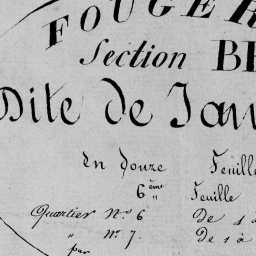 FOUGER
Section B
Dite de Jan
En douze Feuille
6ème Feuille
Quartier N° 6 De 1 à
" N° 7. De 1 à
par